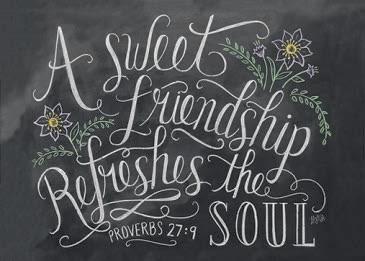 A sweet
friendship
Refreshes the
SOUL
PROVERBS 27:9